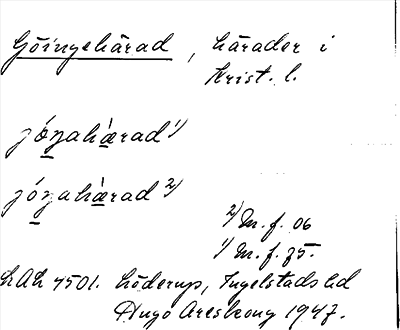 Göingehärad, härader i
Krist. l.
jó̱ŋahæ̱rad 1)
jó̱ŋahæ̱rad 2)
2) M. f. 06
1) M. f. 75.
LAL 4501. Löderup, Ingelstads hd
Hugo Areskoug 1947.